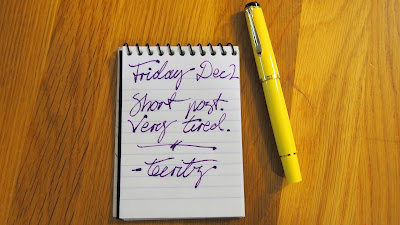 Friday Dec 2
Short post.
Very tired.